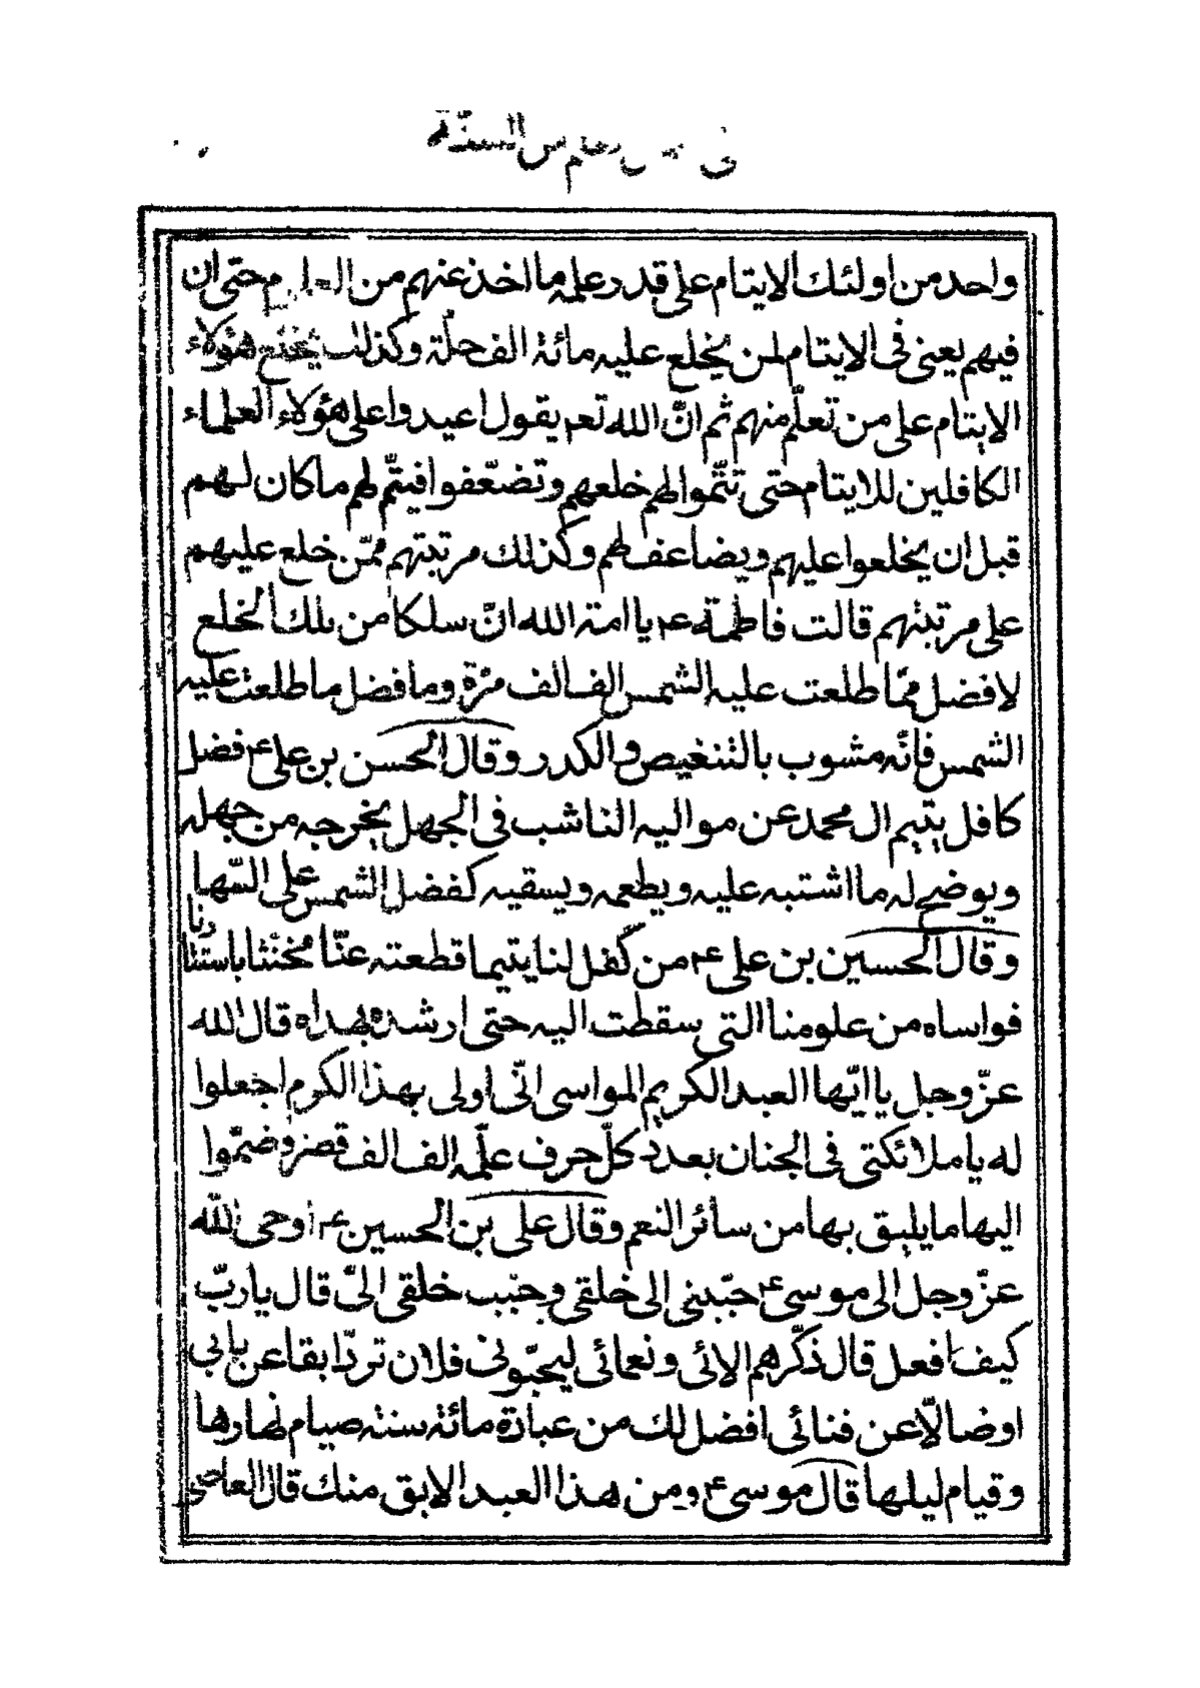 السنّة
واحد من اولئك الايتام على قدر علمه ما اخذ عنهم من العلوم حتى ان
فيهم يعنى فى الايتام لمن يخلع عليه مائة الف حلّة وكذلك يخلع هؤلاء
الايتام على من تعلّم منهم ثم انّ الله تعم يقول اعيدوا على هؤلاء العلماء
الكافلين للايتام حتى تتمّوا لهم خلعهم وتضعّفوا فيتمّ لهم ما كان لهم
قبل ان يخلعوا عليهم ويضاعف لهم وكذلك مرتبتهم ممّن خلع عليهم
على مرتبتهم قالت فاطمة ع يا امة الله انّ سلكا من تلك الخلع
لافضل ممّا طلعت عليه الشمس الف الف مرّة وما فضل ما طلعت عليه
الشمس فانّه مشوب بالتنغيص والكدر وقال الحسن بن على ع فضل
كافل يتيم ال محمد عن مواليه الناشب فى الجهل يخرجه من جهله
ويوضح له ما اشتبه عليه ويطعمه ويسقيه كفضل الشمس على السّها
وقال الحسين بن على ع من كفل لنا يتيما قطعته عنّا محنتنا باستتارنا
فواساه من علومنا التى سقطت اليه حتى ارشده بهداه قال الله
عزّ وجل يا ايّها العبد الكريم المواسى انّى اولى بهذا الكرم اجعلوا
له يا ملائكتى فى الجنان بعدد كلّ حرف علّمه الف الف قصر وضمّوا
اليها ما يليق بها من سائر النعم وقال على بن الحسين ع اوحى الله
عزّ وجل الى موسى ع حبّبنى الى خلقى وحبّب خلقى الىّ قال يا ربّ
كيف افعل قال ذكّرهم الائى ونعمائى ليحبّونى فلان تردّ ابقا عن بابى
او ضالّا عن فنائى افضل لك من عبادة مائة سنة صيام نهارها
وقيام ليلها قال موسى ع ومن هذا العبد الابق منك قال العاصى